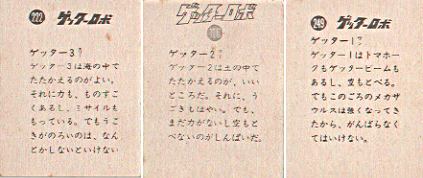 222 ゲッターロボ
ゲッター3
ゲッター3は海の中で
たたかえるのがよい。
それに力も、ものすご
くあるし、ミサイルも
もっている。でもうご
きがのろいのは、なん
とかしないといけない
ゲッターロボ
ゲッター2
ゲッター2は土の中で
たたかえるのが、いい
ところだ。それに、う
ごきもはやい。でも、
まだ力がないし空もと
べないのがしんぱいだ。
249 ゲッターロボ
ゲッター1
ゲッター1はトマホー
クもゲッタービームも
あるし、空もとべる。
でもこのごろのメカザ
ウルスは強くなってき
たから、がんばらなく
てはいけない。